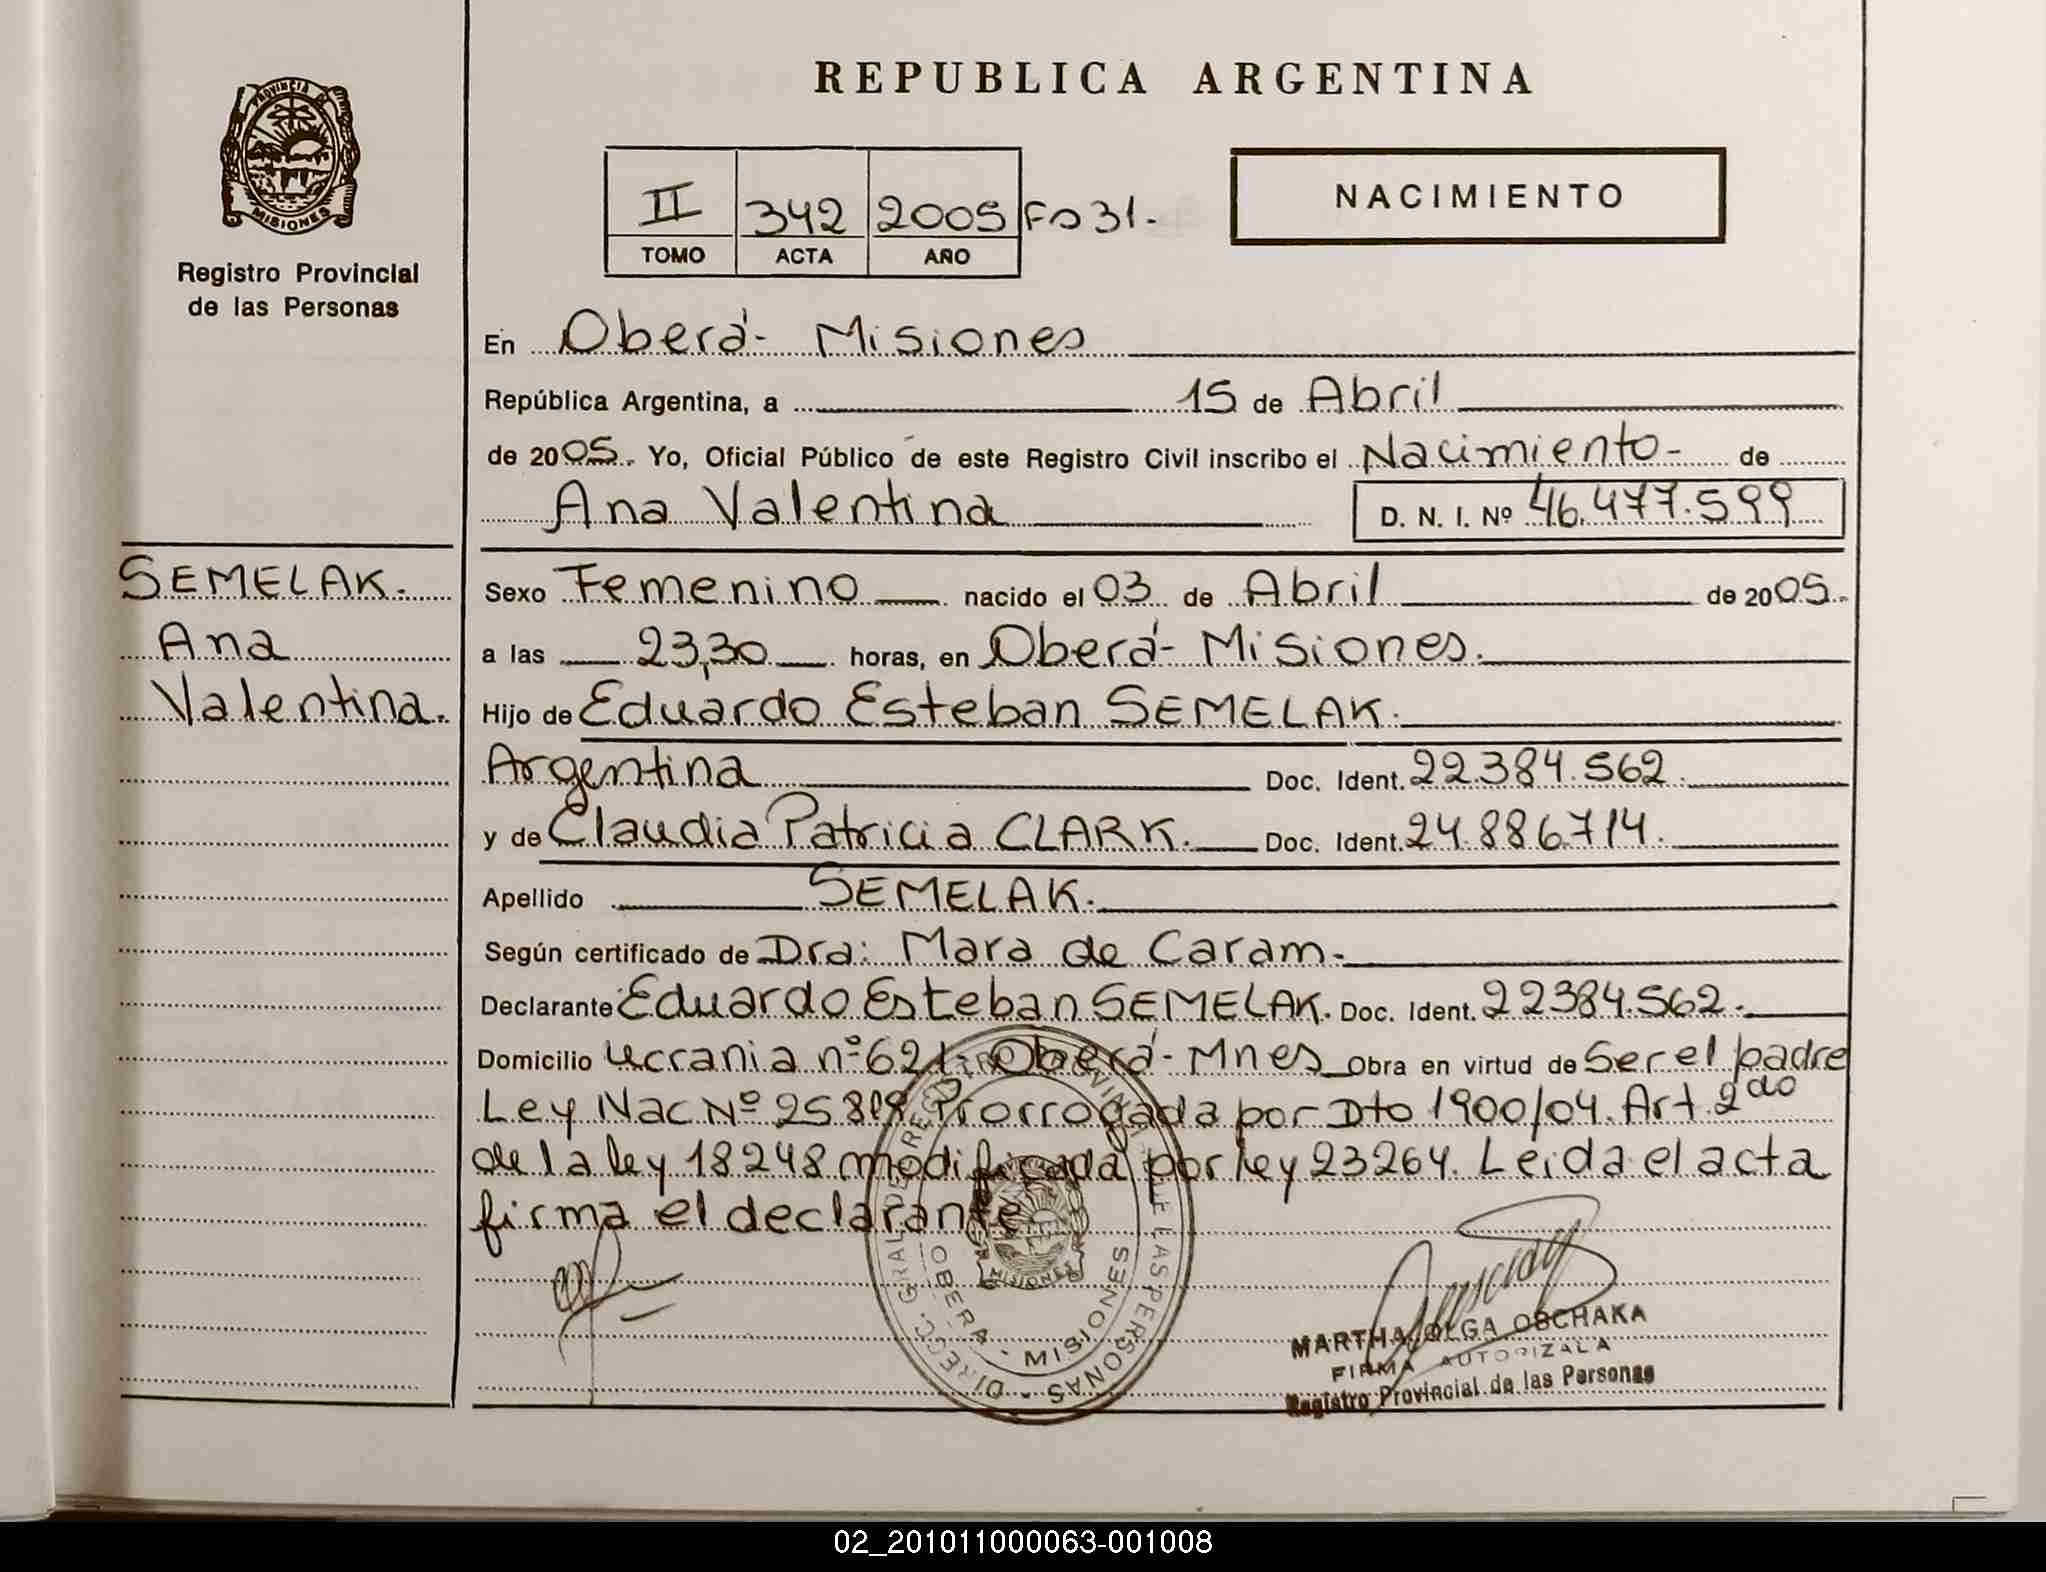 REPUBLICA ARGENTINA
PROVINCIA DE
MISIONES
Registro Provincial
de las Personas
II 342 2005 Fo 31.-
TOMO ACTA AÑO
NACIMIENTO
En Oberá - Misiones
República Argentina, a 15 de Abril
de 2005. Yo, Oficial Público de este Registro Civil inscribo el Nacimiento - de
Ana Valentina D. N. I. Nº 46.477.599
SEMELAK.
Ana
Valentina.
Sexo Femenino nacido el 03 de Abril de 2005.
a las 23,30 horas, en Oberá - Misiones.
Hijo de Eduardo Esteban SEMELAK.
Argentina Doc. Ident. 22.384.562.
y de Claudia Patricia CLARK. Doc. Ident. 24.886.714.
Apellido SEMELAK.
Según certificado de Dra: Mara de Caram.
Declarante Eduardo Esteban SEMELAK. Doc. Ident. 22384.562.
Domicilio Ucrania nº 621 - Oberá - Mnes Obra en virtud de Ser el padre
Ley Nac Nº 25.819 Prorrogada por Dto 1900/04. Art. 2do
de la ley 18248 modificada por ley 23264. Leida el acta
firma el declarante
DIRECC. GRAL. DE REGISTRO PROVINCIAL DE LAS PERSONAS
OBERA - MISIONES
MISIONES
MARTHA OLGA OBCHAKA
FIRMA AUTORIZADA
Registro Provincial de las Personas
02_201011000063-001008